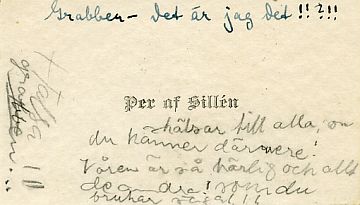 Grabben – det är jag det!!?!!
Hälsa
grabben...!!
Per af Sillén
hälsar till alla, som
du känner därnere!
Våren är så härlig och allt
de andra! som du
brukar säga!!